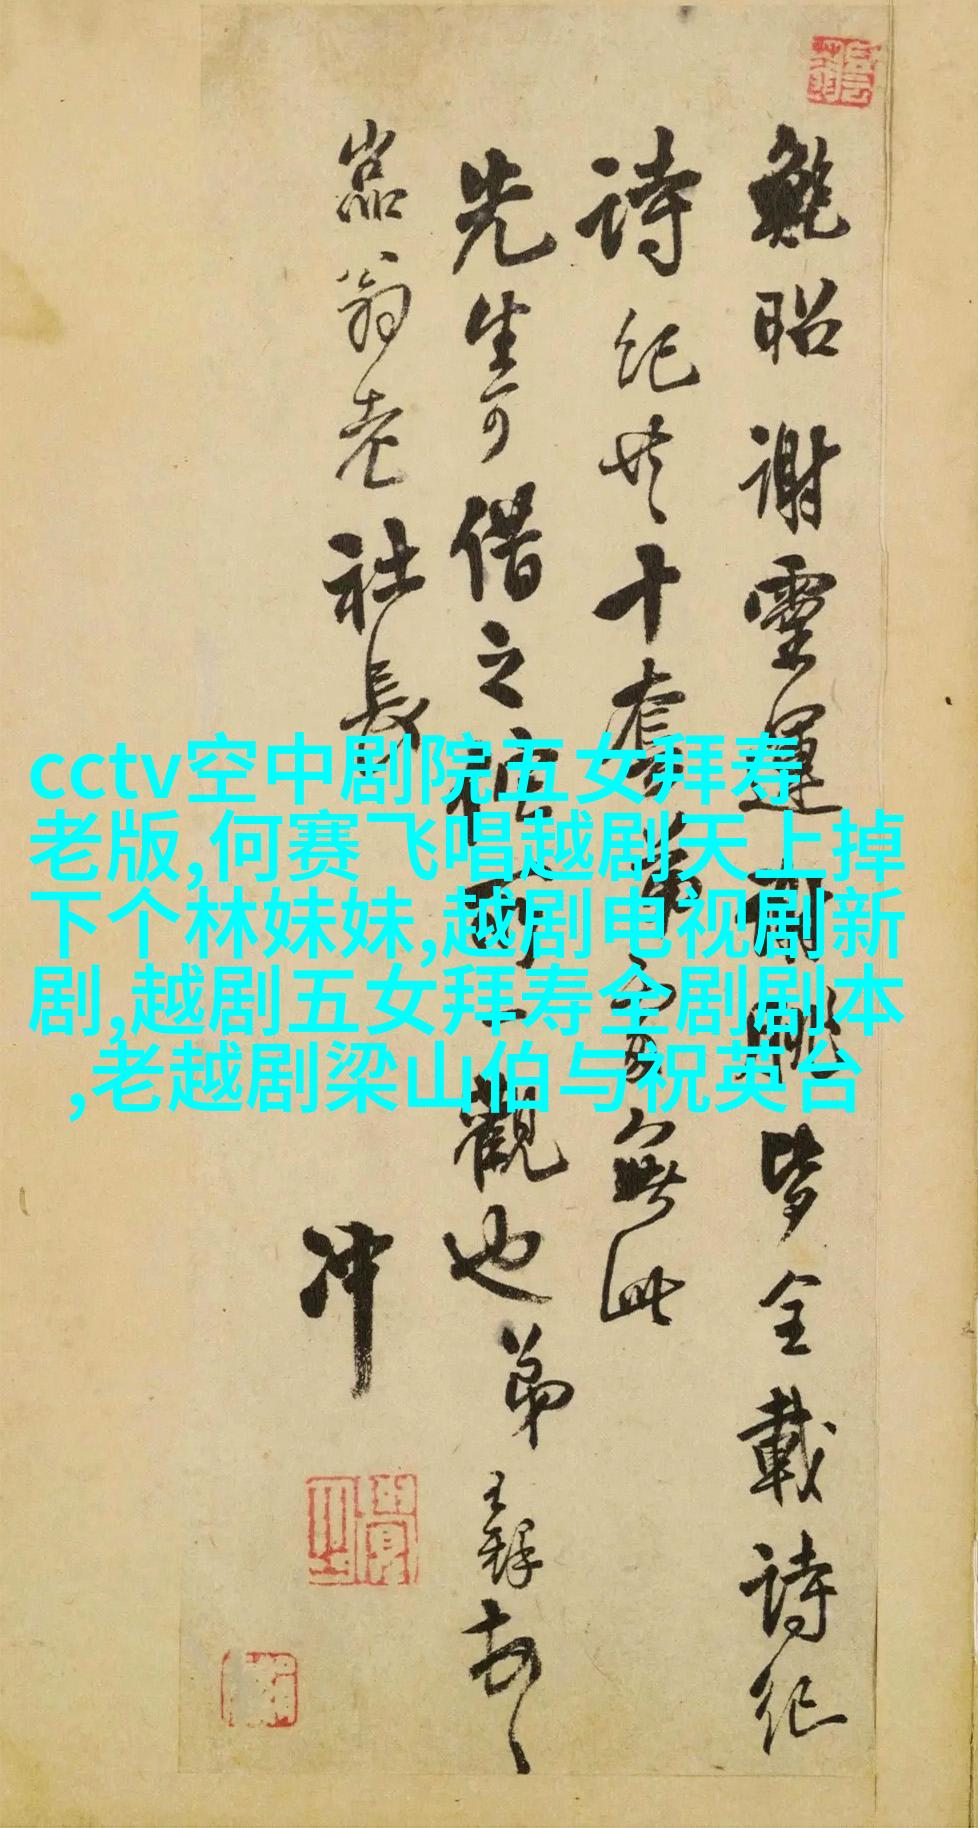 鮑照謝靈運謝朓皆全載詩紀
詩紀共十套第
無此
先生可借之
觀也弟王鐸
嵓翁老社長
冲
cctv空中剧院五女拜寿
老版,何赛飞唱越剧天上掉
下个林妹妹,越剧电视剧新
剧,越剧五女拜寿全剧剧本
,老越剧梁山伯与祝英台